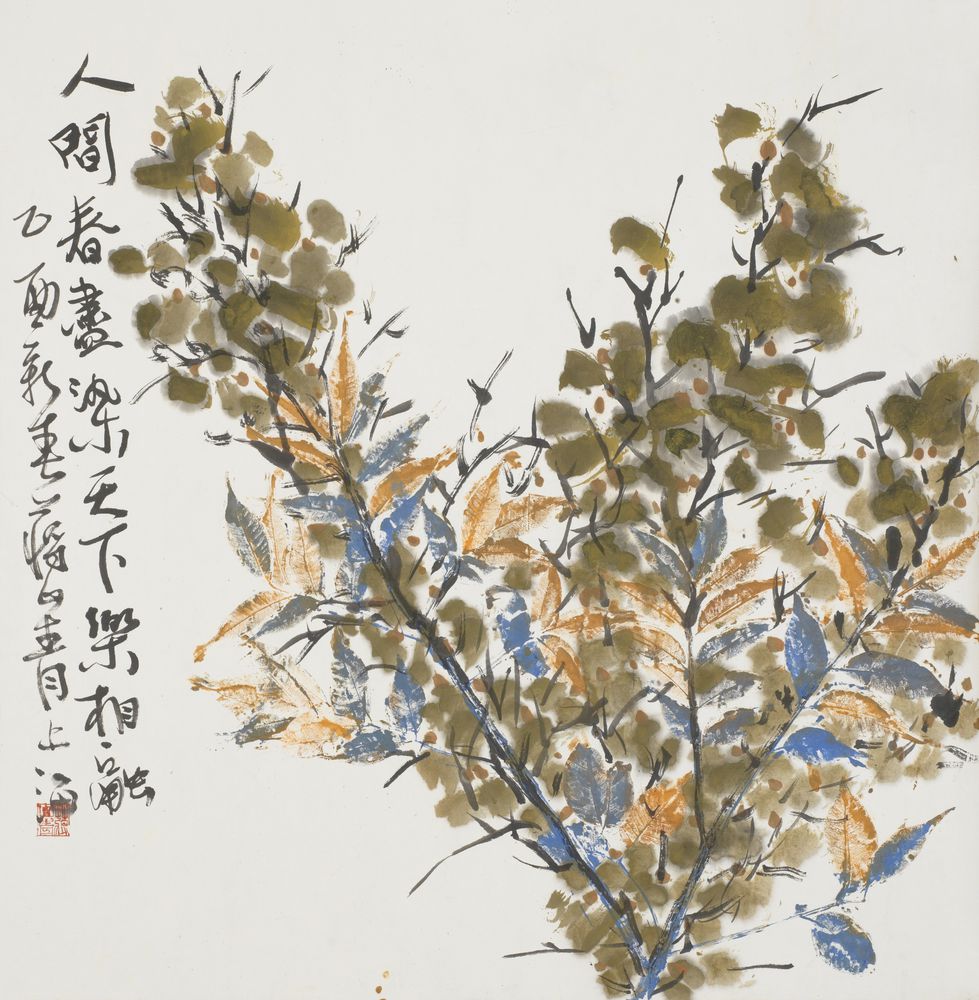 人間春盡染天下樂相融
乙酉新春蔣山青上